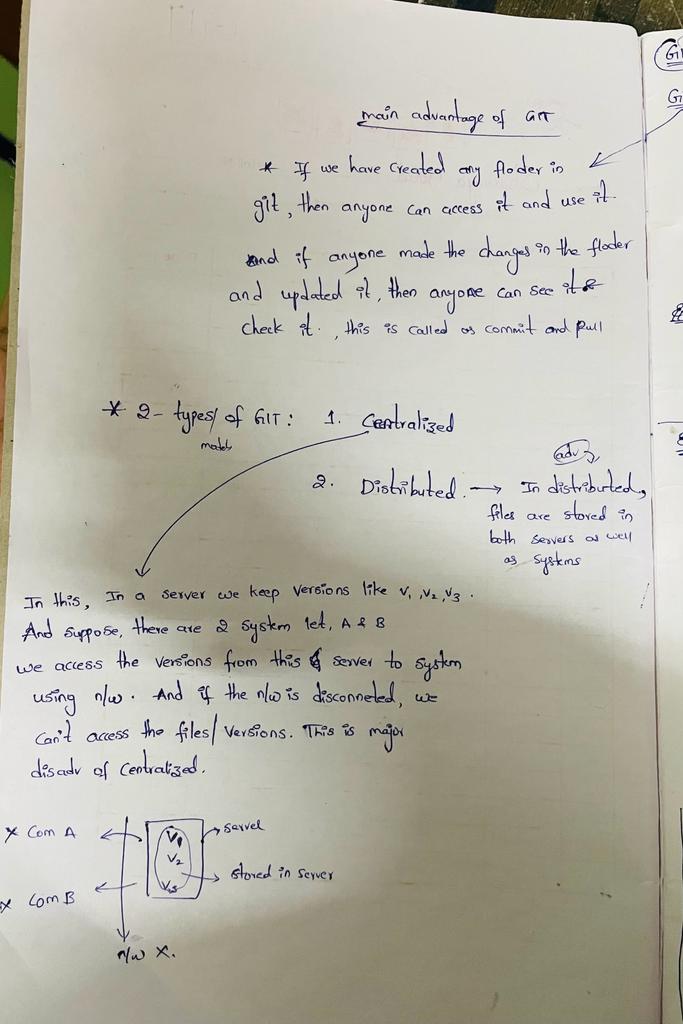 main advantage of GIT
* If we have created any floder in
git, then anyone can access it and use it.
and if anyone made the changes in the floder
and updated it, then anyone can see it &
check it. , this is called as commit and pull
* 2- types/ of GIT : 1. Centralized
models
adv
2. Distributed. → In distributed,
files are stored in
both servers as well
as systems
In this, In a server we keep versions like V1, V2, V3 .
And suppose, there are 2 system let, A & B
we access the versions from this server to system
using n/w . And if the n/w is disconneted, we
can't access the files/ versions. This is major
disadv of centralized.
x Com A
V1
server
V2
stored in server
V3
x Com B
n/w x.
GI
G